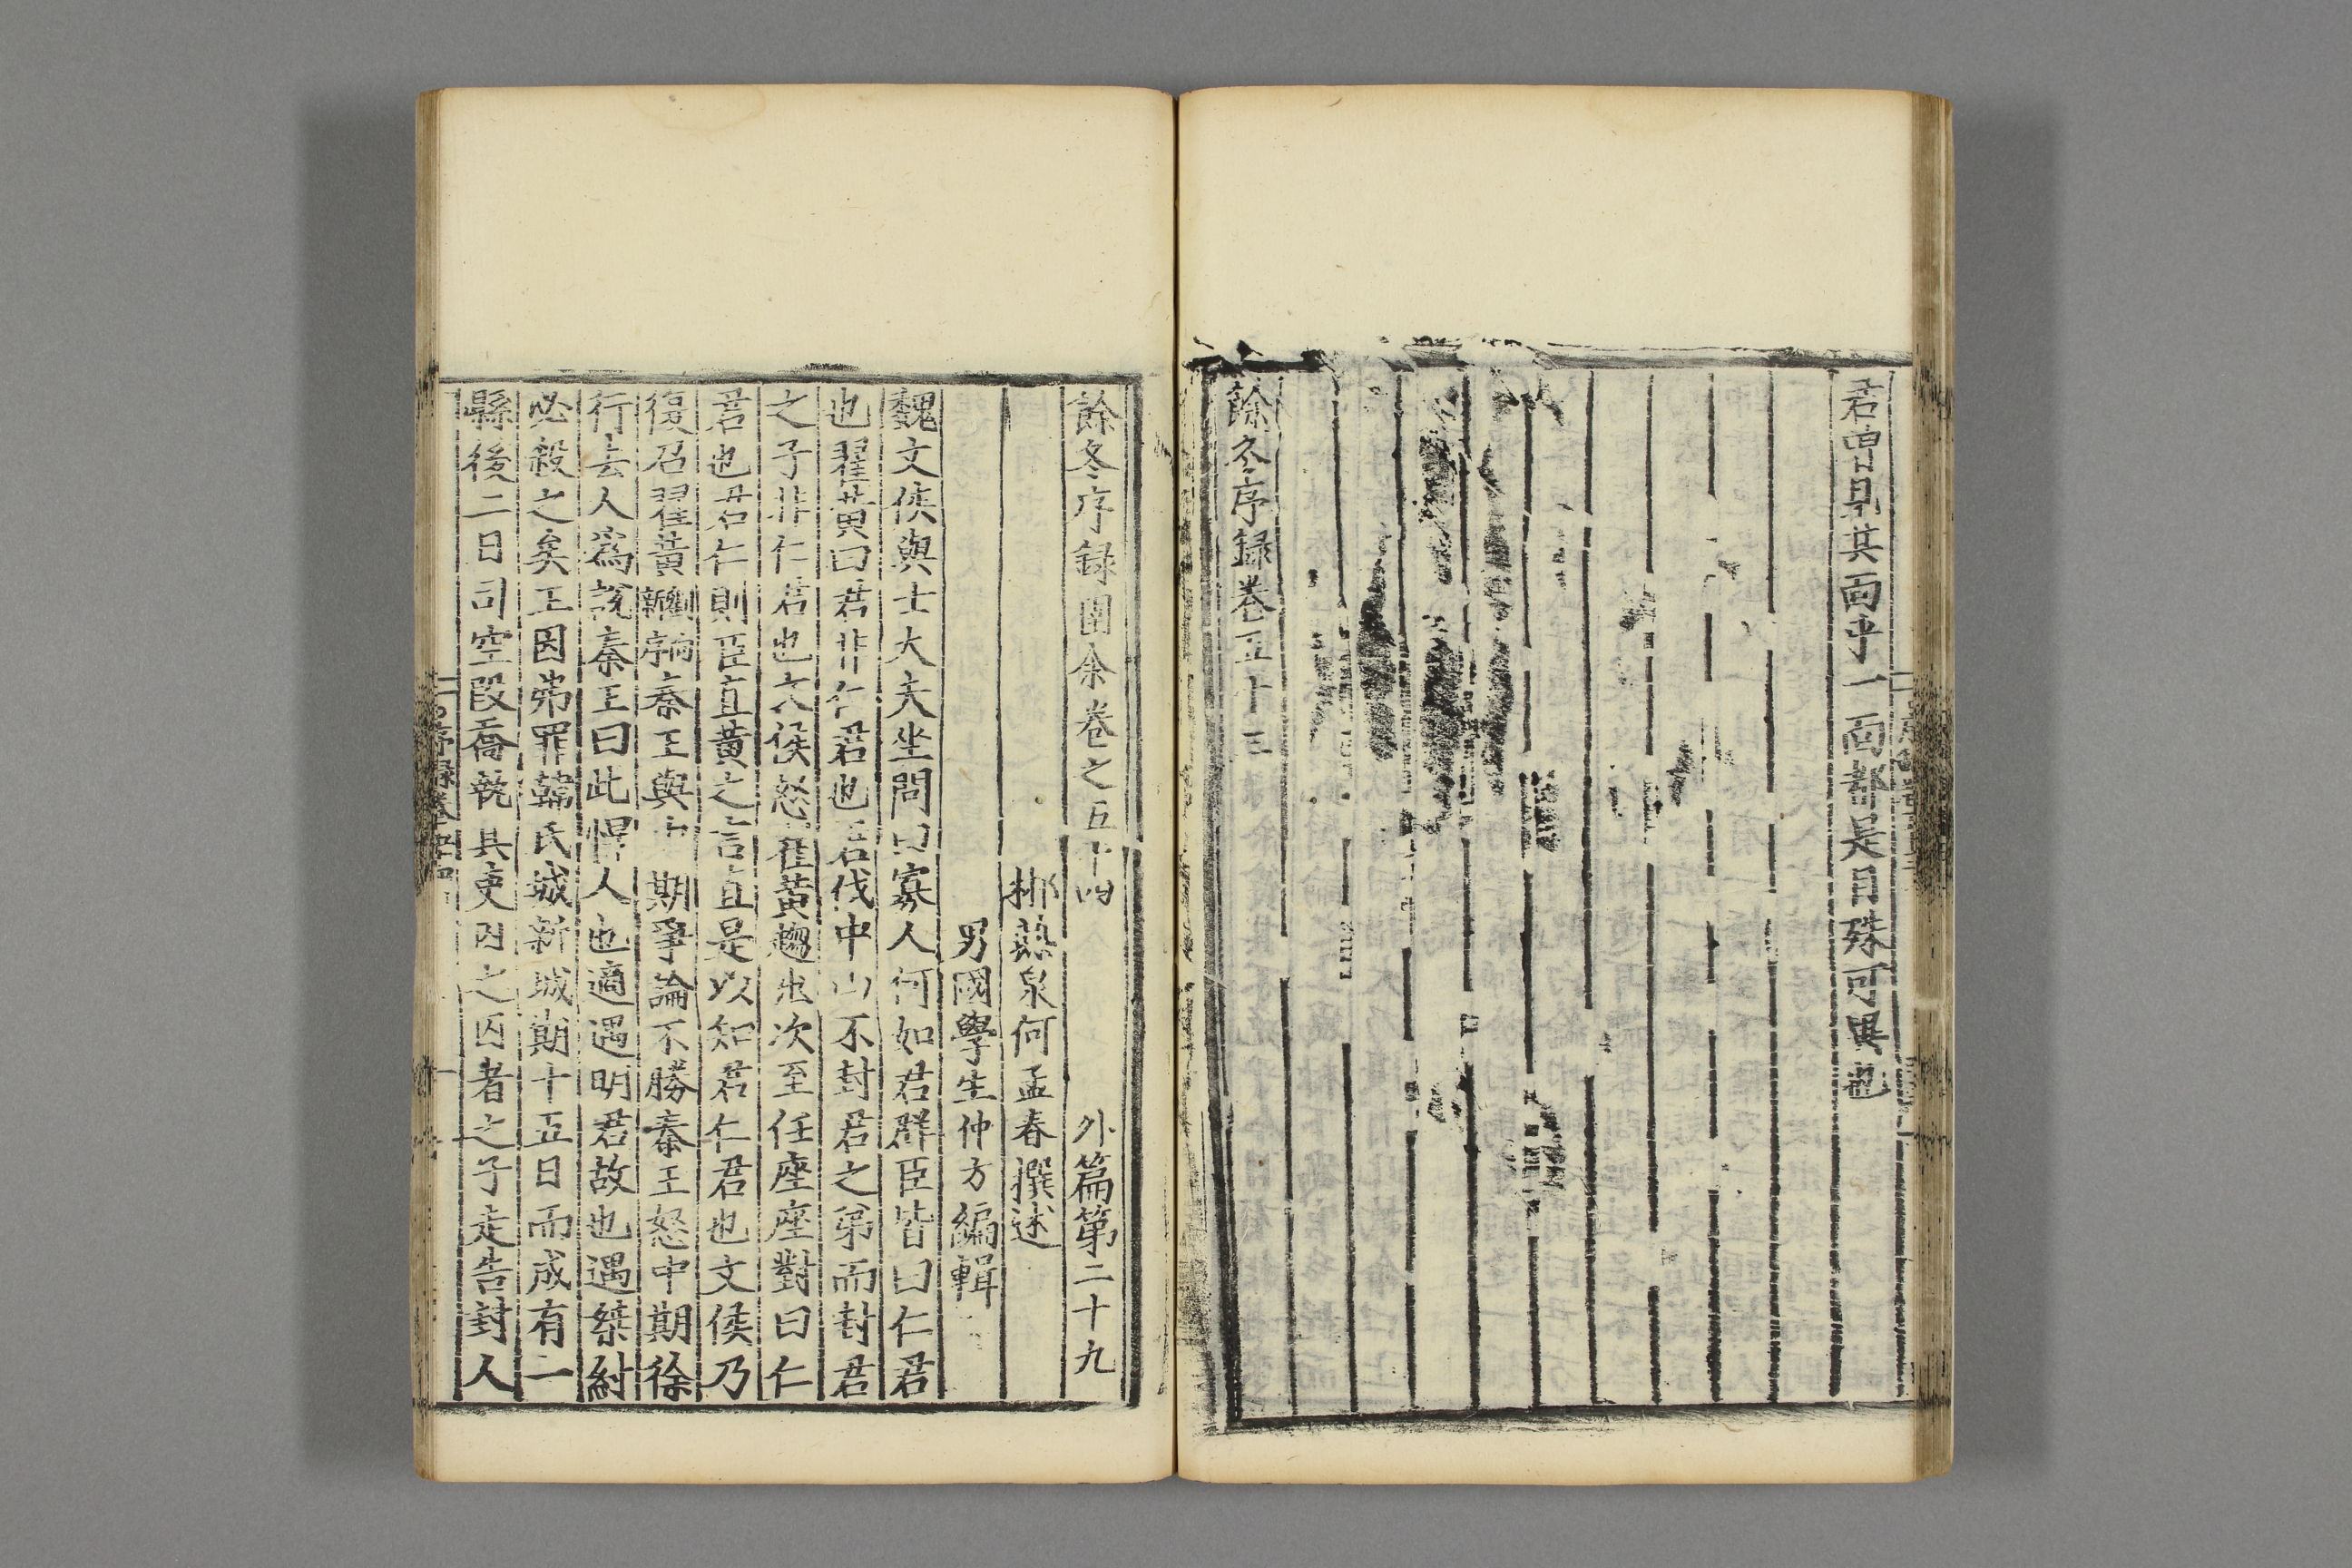 君曾見其面乎一面都是目殊可異也
餘冬序録卷五十三
餘冬序録閏余卷之五十四 外篇第二十九
郴燕泉何孟春撰述
男國學生仲方編輯
魏文侯與士大夫坐問曰寡人何如君群臣皆曰仁君
也翟黄曰君非仁君也君伐中山不封君之弟而封君
之子非仁君也文侯怒翟黄趨出次至任座座對曰仁
君也君仁則臣直黄之言直是以知君仁君也文侯乃
復召翟黄 秦王與中期爭論不勝秦王怒中期徐
行去人爲説秦王曰此悍人也適遇明君故也遇桀紂
必殺之矣王因弗罪韓氏城新城期十五日而成有一
縣後二日司空段喬執其吏囚之囚者之子走告封人